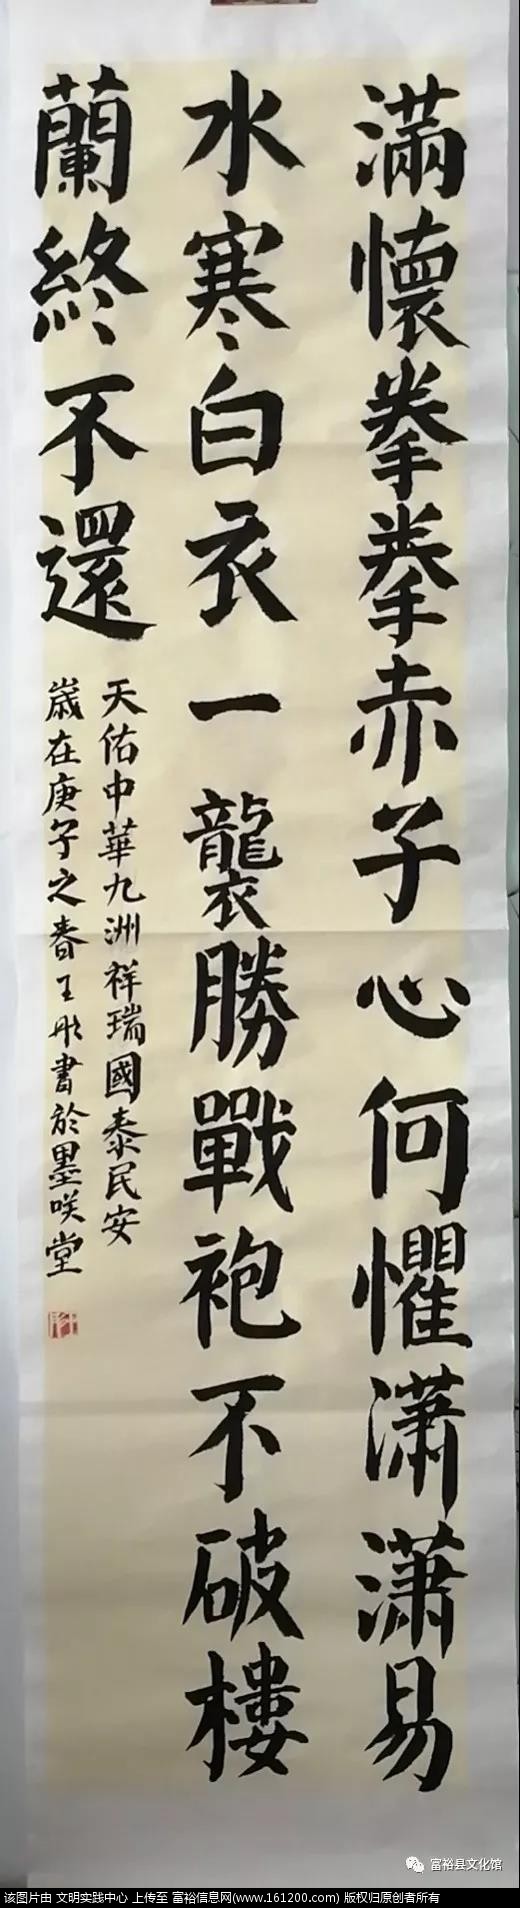 滿懷拳拳赤子心何懼潇潇易
水寒白衣一襲勝戰袍不破樓
蘭終不還
天佑中華九洲祥瑞國泰民安
歲在庚子之春王彤書於墨咲堂
富裕县文化馆
该图片由 文明实践中心 上传至 富裕信息网(www.161200.com) 版权归原创者所有